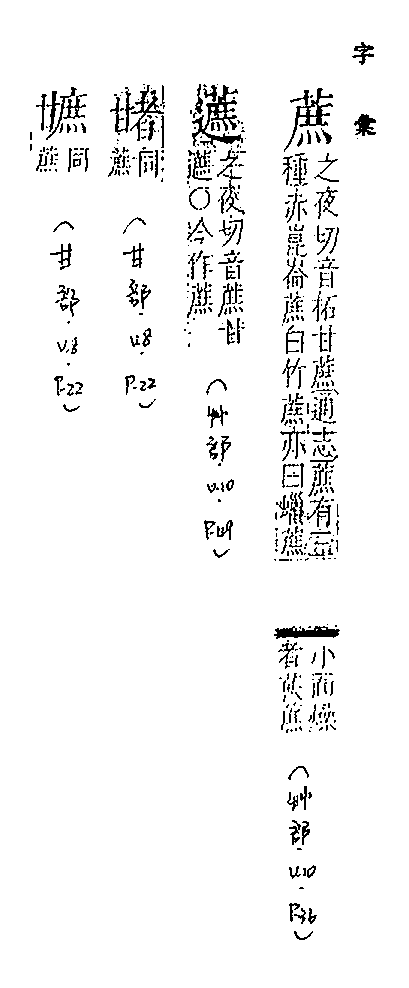 字彙
蔗
之夜切音柘甘蔗通志蔗有三
種赤崑崙蔗白竹蔗亦曰蠟蔗
小而燥
者荻蔗
(艸部.v.10.P.36)
之夜切音蔗甘
蔗〇今作蔗
(艸部.v.10.P.49)
同
蔗
(甘部.v.8.P.22)
同
蔗
(甘部.v.8.P.22)